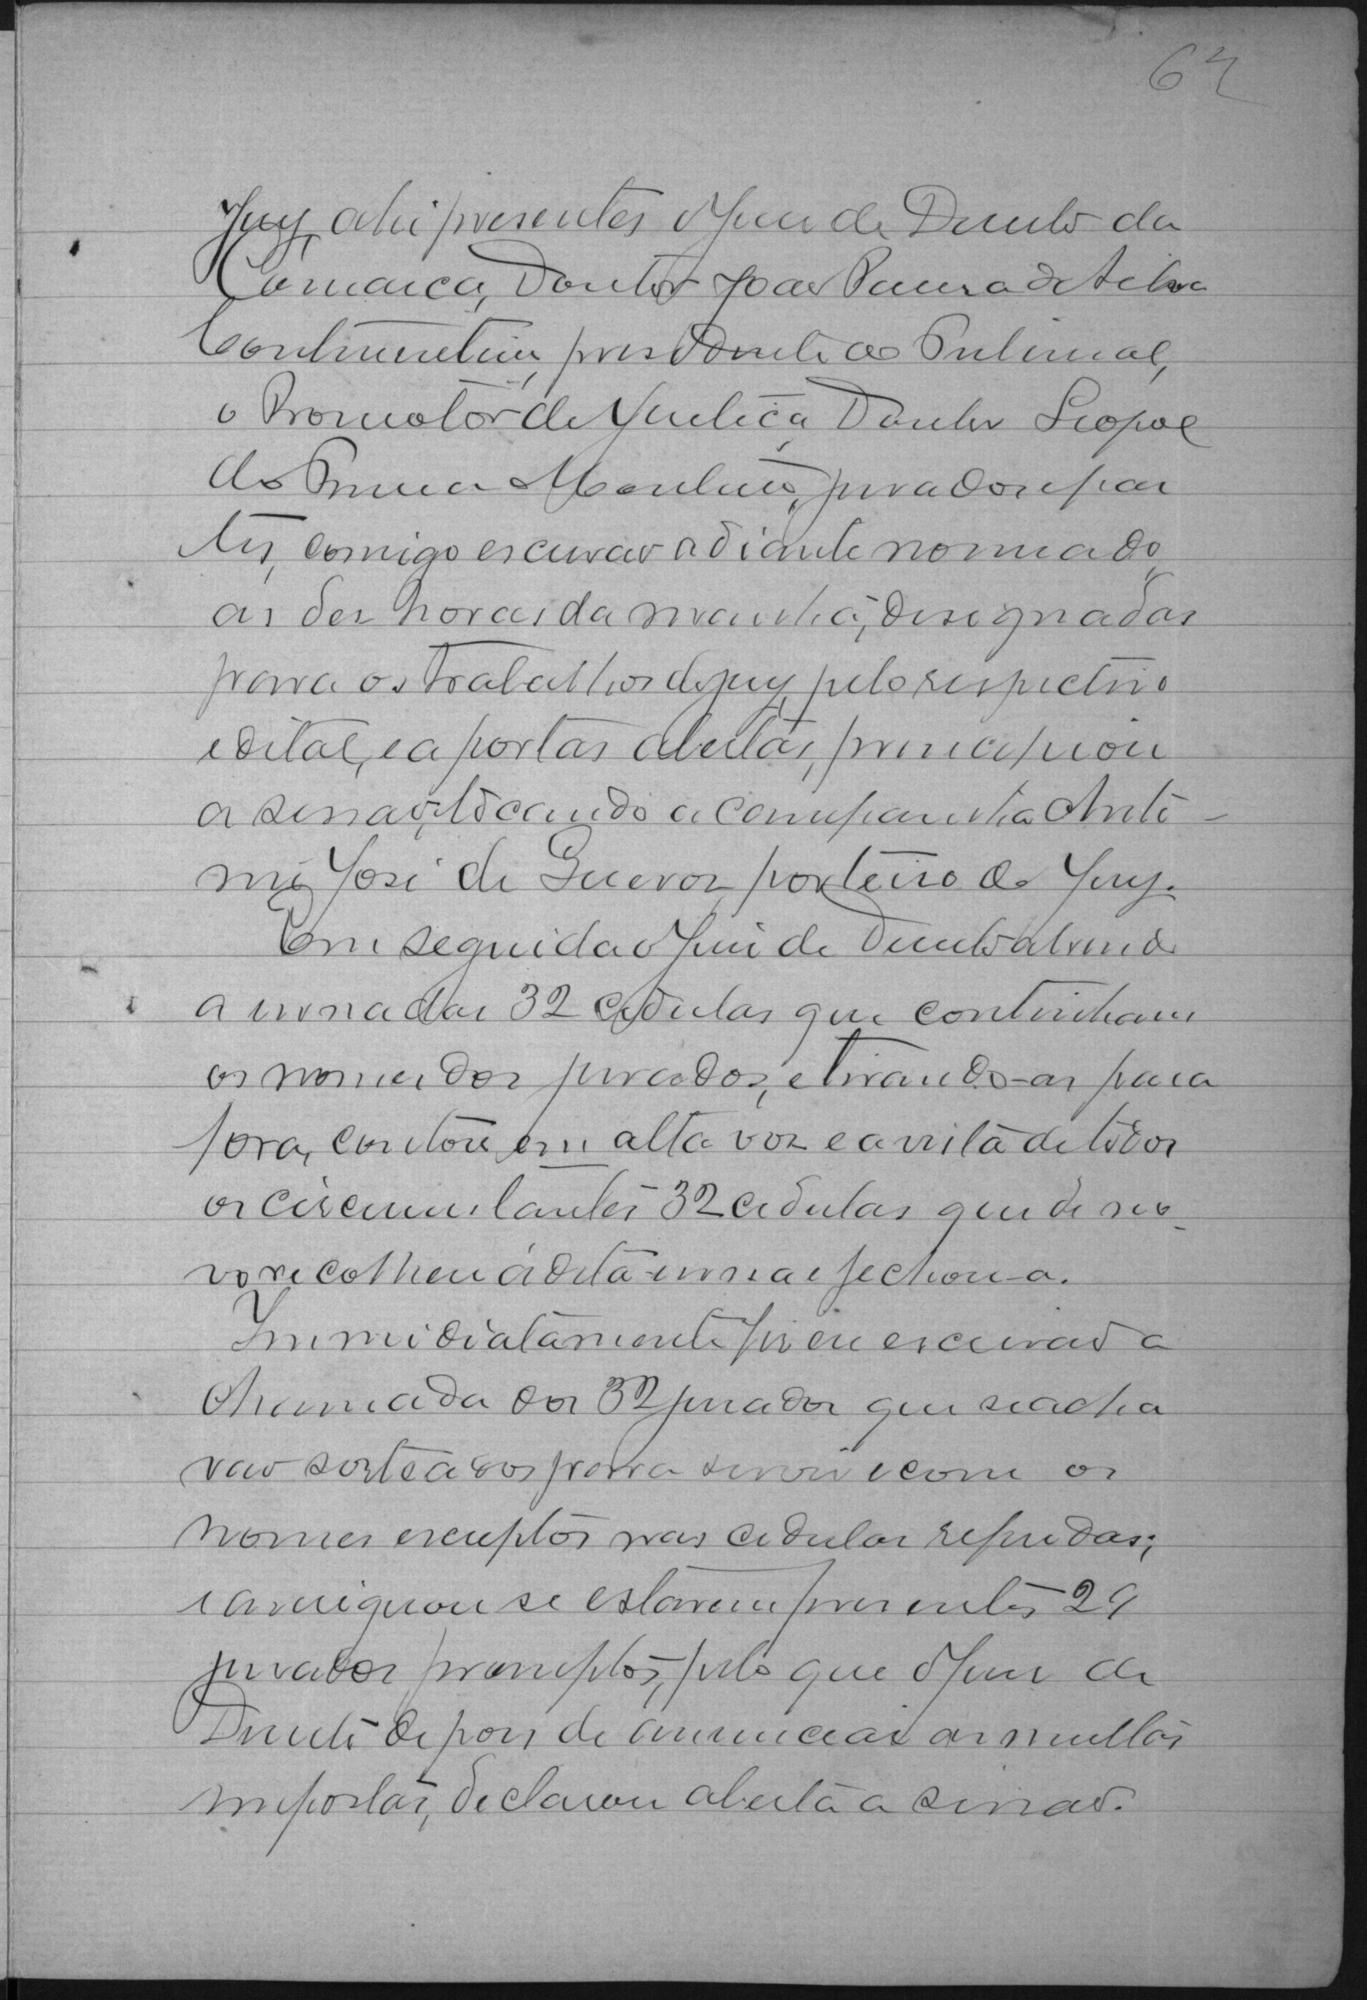 64
Jury, ahi presentes o Juiz de Direito da
Comarca, Doutor João Pereira da Silva
Continentino, presidente do Tribunal,
o Promotor de Justiça Doutor Leopol
do Monteiro, jurados e par
tes, comigo escrivão adiante nomeado,
as dez horas da manhã, designadas
para os trabalhos do jury, pelo respectivo
edital, e a portas abertas, principiou
a sessão, tocando a campanhia Anto-
nio José de Queiroz, porteiro do Jury.
Em seguida o Juiz de Direito abrindo
a urna das 32 cedulas que continham
os nomes dos jurados, e tirando-as para
fora, contou em alta voz e a vista de todos
os circumstantes 32 cedulas que de no-
vo recolheu á dita urna e fechou-a.
Immediatamente fiz eu escrivão a
chamada dos 32 jurados que se acha
vão sorteados para servir e com os
nomes escriptos nas cedulas referidas;
e averiguou se estarem presentes 29
jurados promptos, pelo que o Juiz de
Direito depois de annunciar as multas
impostas, declarou aberta a sessão.